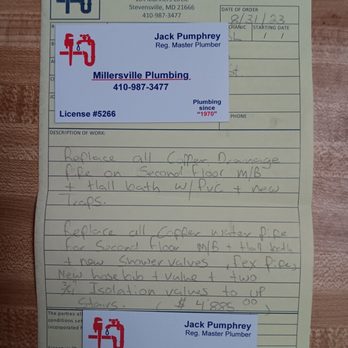 Stevensville, MD 21666
410-987-3477
DATE OF ORDER
8/31/23
STARTING DATE
Jack Pumphrey
Reg. Master Plumber
Millersville Plumbing
410-987-3477
License #5266
Plumbing
since
"1970"
DESCRIPTION OF WORK:
Replace all Copper Drainage
Pipe on Second Floor M/B
+ Hall bath w/PVC + new
Traps.
Replace all Copper water Pipe
For Second Floor M/B + Hall bath
+ new Shower valves, Pex Pipe,
New hose bib + valve + two
3/4" Isolation valves to up
Stairs. ($4,885.00)
The parties
Jack Pumphrey
Reg. Master Plumber